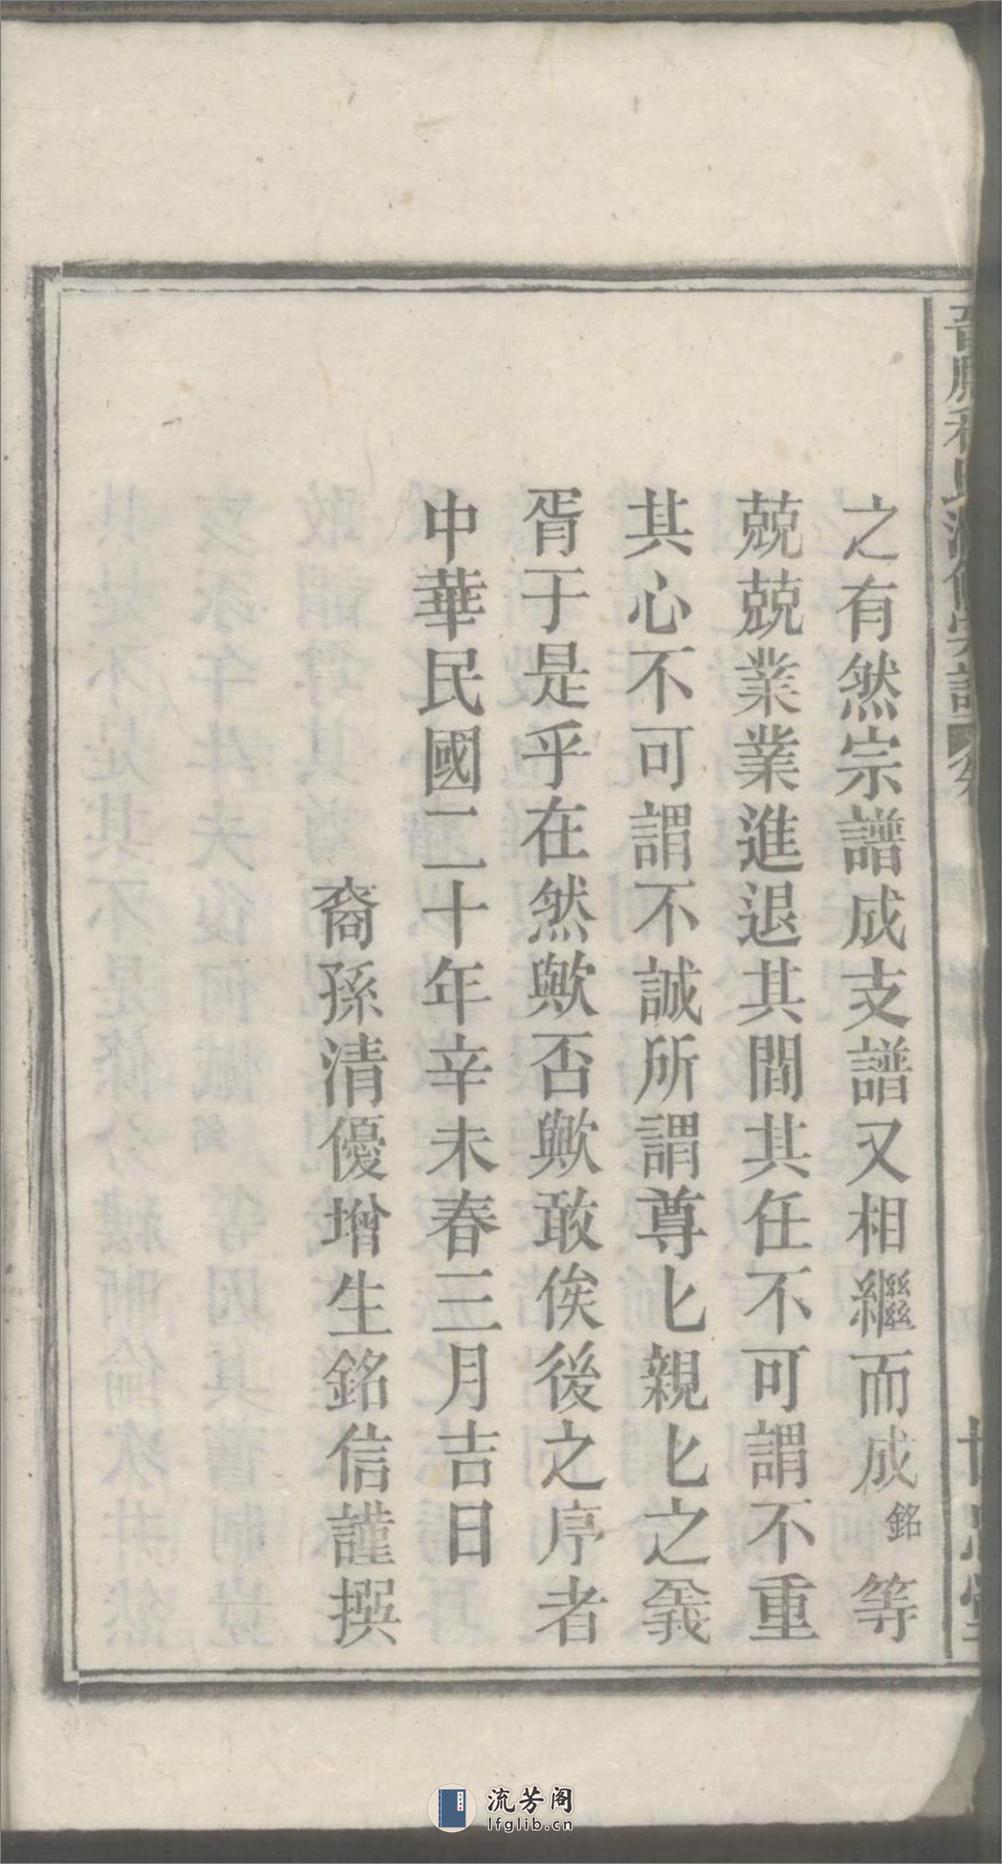 之有然宗譜成支譜又相繼而成銘等
兢兢業業進退其間其任不可謂不重
其心不可謂不誠所謂尊匕親匕之義
胥于是乎在然歟否歟敢俟後之序者
中華民國二十年辛未春三月吉日
裔孫清優增生銘信謹撰
流芳阁
lfglib.cn